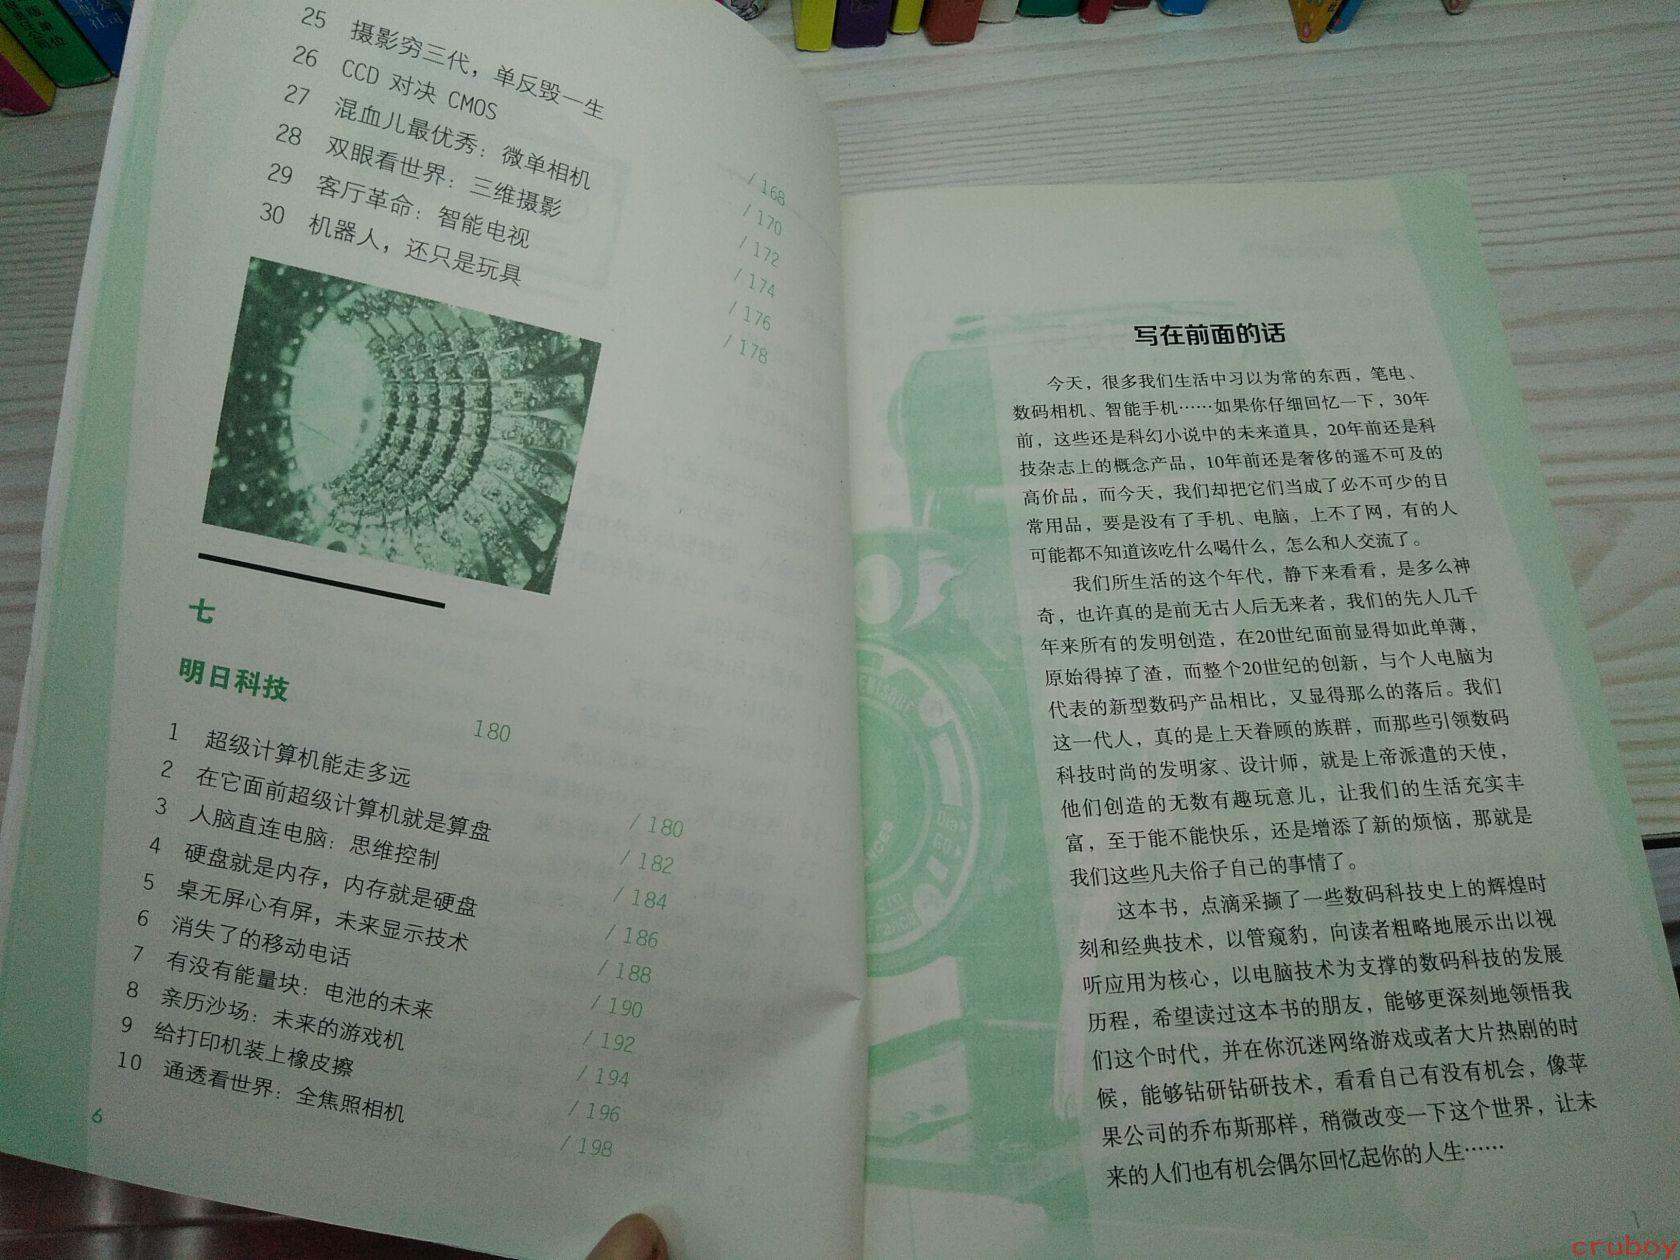 25 摄影穷三代，单反毁一生 / 168
26 CCD 对决 CMOS / 170
27 混血儿最优秀：微单相机 / 172
28 双眼看世界：三维摄影 / 174
29 客厅革命：智能电视 / 176
30 机器人，还只是玩具 / 178
七
明日科技
180
1 超级计算机能走多远 / 180
2 在它面前超级计算机就是算盘 / 182
3 人脑直连电脑：思维控制 / 184
4 硬盘就是内存，内存就是硬盘 / 186
5 桌无屏心有屏，未来显示技术 / 188
6 消失了的移动电话 / 190
7 有没有能量块：电池的未来 / 192
8 亲历沙场：未来的游戏机 / 194
9 给打印机装上橡皮擦 / 196
10 通透看世界：全焦照相机 / 198
6
写在前面的话
今天，很多我们生活中习以为常的东西，笔电、
数码相机、智能手机……如果你仔细回忆一下，30年
前，这些还是科幻小说中的未来道具，20年前还是科
技杂志上的概念产品，10年前还是奢侈的遥不可及的
高价品，而今天，我们却把它们当成了必不可少的日
常用品，要是没有了手机、电脑，上不了网，有的人
可能都不知道该吃什么喝什么，怎么和人交流了。
我们所生活的这个年代，静下来看看，是多么神
奇，也许真的是前无古人后无来者，我们的先人几千
年来所有的发明创造，在20世纪面前显得如此单薄，
原始得掉了渣，而整个20世纪的创新，与个人电脑为
代表的新型数码产品相比，又显得那么的落后。我们
这一代人，真的是上天眷顾的族群，而那些引领数码
科技时尚的发明家、设计师，就是上帝派遣的天使，
他们创造的无数有趣玩意儿，让我们的生活充实丰
富，至于能不能快乐，还是增添了新的烦恼，那就是
我们这些凡夫俗子自己的事情了。
这本书，点滴采撷了一些数码科技史上的辉煌时
刻和经典技术，以管窥豹，向读者粗略地展示出以视
听应用为核心，以电脑技术为支撑的数码科技的发展
历程，希望读过这本书的朋友，能够更深刻地领悟我
们这个时代，并在你沉迷网络游戏或者大片热剧的时
候，能够钻研钻研技术，看看自己有没有机会，像苹
果公司的乔布斯那样，稍微改变一下这个世界，让未
来的人们也有机会偶尔回忆起你的人生……
1
cruboy